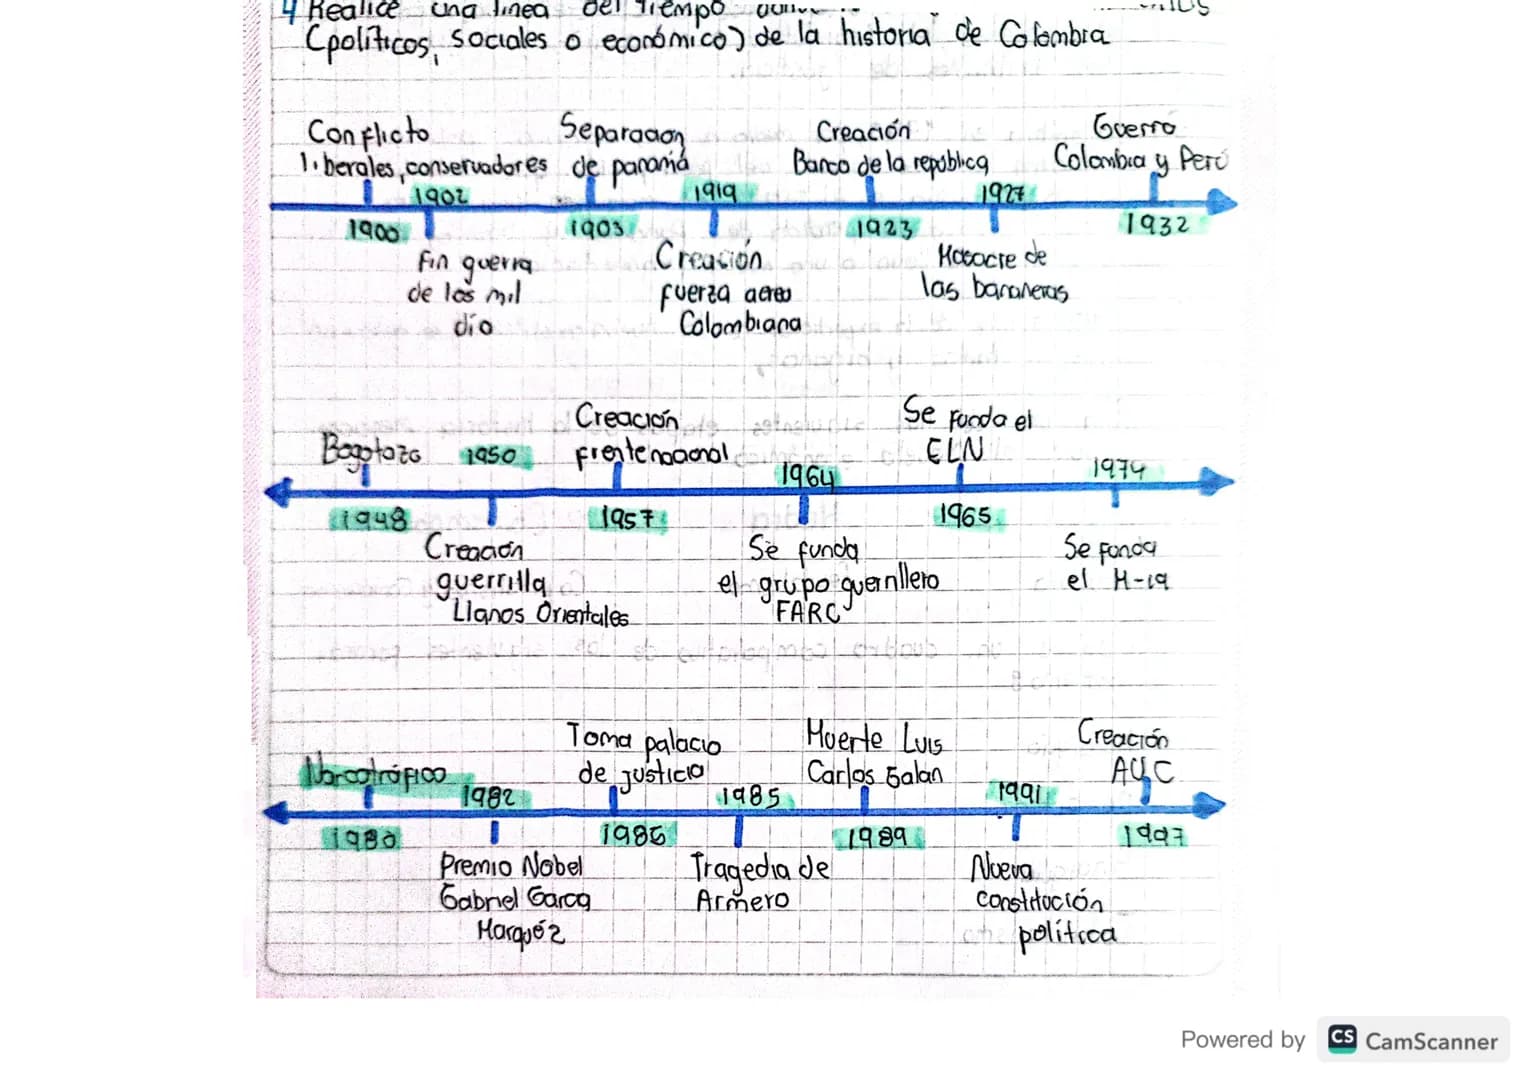 4 Realice una línea del tiempo
(políticos, sociales o económico) de la historia de Colombia
Conflicto
liberales, conservadores
Separacion
de panamá
Creación
Banco de la republica
Guerra
Colombia y Perú
1902
1919
1927
1900
1903
1923
1932
Fin guerra
de los mil
dio
Creación
fuerza aerea
Colombiana
Masacre de
las bananeras
Bogotazo
1950
Creación
frente nacional
1964
Se funda el
ELN
1974
1948
1957
1965
Creación
guerrilla
Llanos Orientales
Se funda
el grupo guerrillero
FARC
Se funda
el M-19
Narcotráfico
1982
Toma palacio
de justicia
1985
Muerte Luis
Carlos Galan
1991
Creación
AUC
1980
1985
1989
1997
Premio Nobel
Gabriel Garcia
Marquéz
Tragedia de
Armero
Nueva
constitución
política
Powered by CS CamScanner